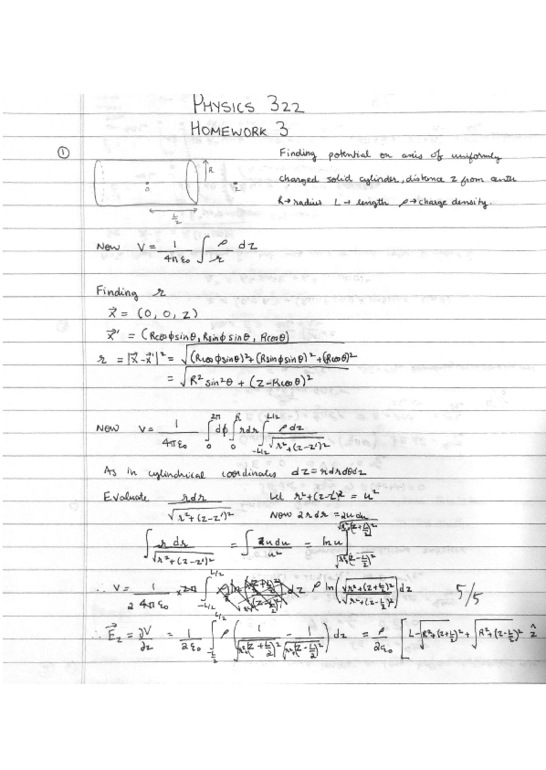 PHYSICS 322
HOMEWORK 3
① Finding potential on axis of uniformly
charged solid cylinder, distance z from center
R→radius L→length ρ→charge density.
R
0 z
L/2
Now V = 1/4πε₀ ∫ ρ/r dZ
Finding r
x⃗ = (0, 0, z)
x⃗' = (Rcosφsinθ, Rsinφsinθ, Rcosθ)
r = |x⃗-x⃗'|² = √(Rcosφsinθ)²+(Rsinφsinθ)²+(Rcosθ)²
= √R²sin²θ + (Z-Rcosθ)²
Now V = 1/4πε₀ ∫₀^2π dφ ∫₀^R rdr ∫_-L/2^L/2 ρdz/√r²+(z-z')²
As in cylindrical coordinates dZ = rdrdθdz
Evaluate rdr/√r²+(z-z')² Let r²+(z-z')² = u²
Now 2rdr = 2udu
∫ r dr/√r²+(z-z')² = ∫ 2udu/u² = ln u
∴ V = 1/2 4πε₀ ∫_-L/2^L/2 ρ ln(√r²+(z+L/2)²/√r²+(z-L/2)²) dz 5/5
∴ E⃗z = ∂V/∂z = 1/2ε₀ ∫_-L/2^L/2 ρ (1/√r²+(z+L/2)² - 1/√r²+(z-L/2)²) dz = ρ/2ε₀ [L-√R²+(z+L/2)² + √R²+(z-L/2)² ẑ